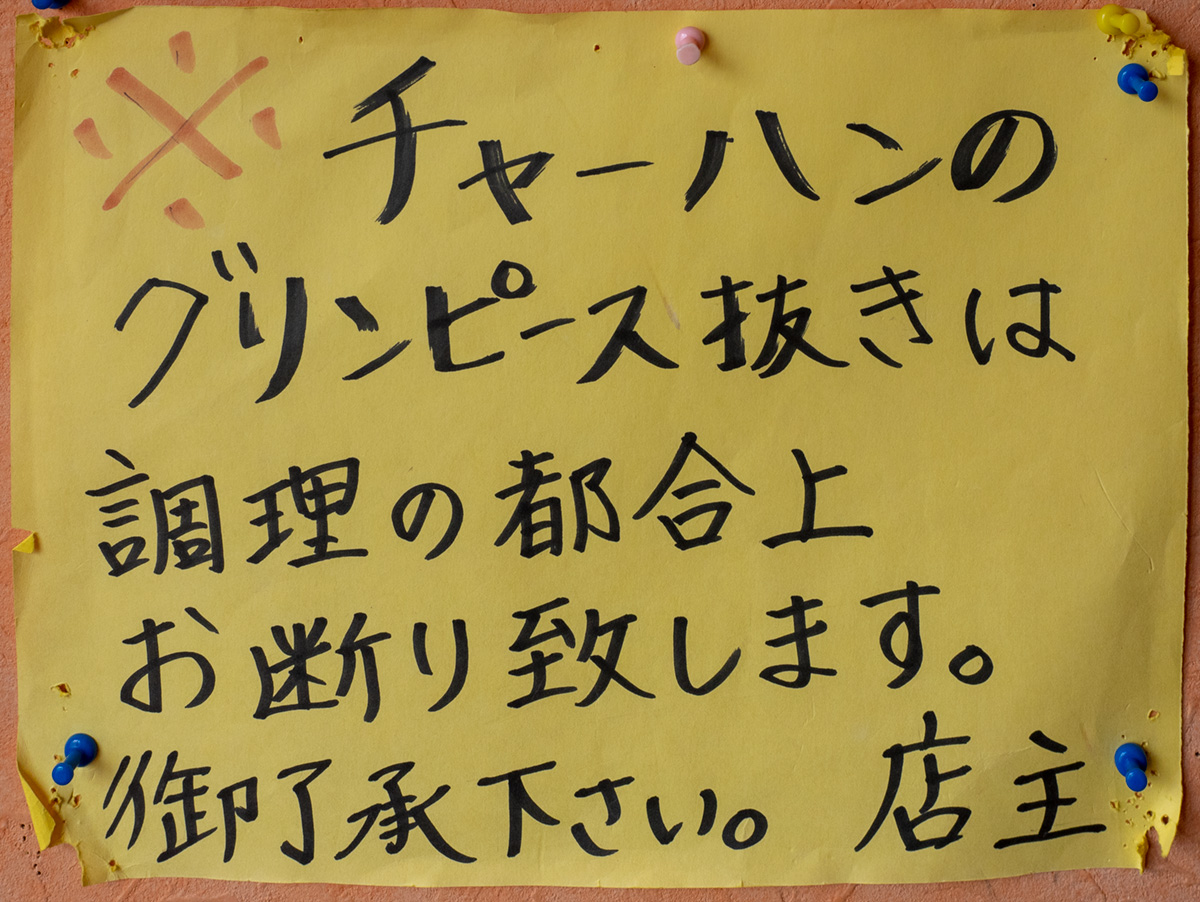 ※ チャーハンの
グリンピース抜きは
調理の都合上
お断り致します。
御了承下さい。 店主